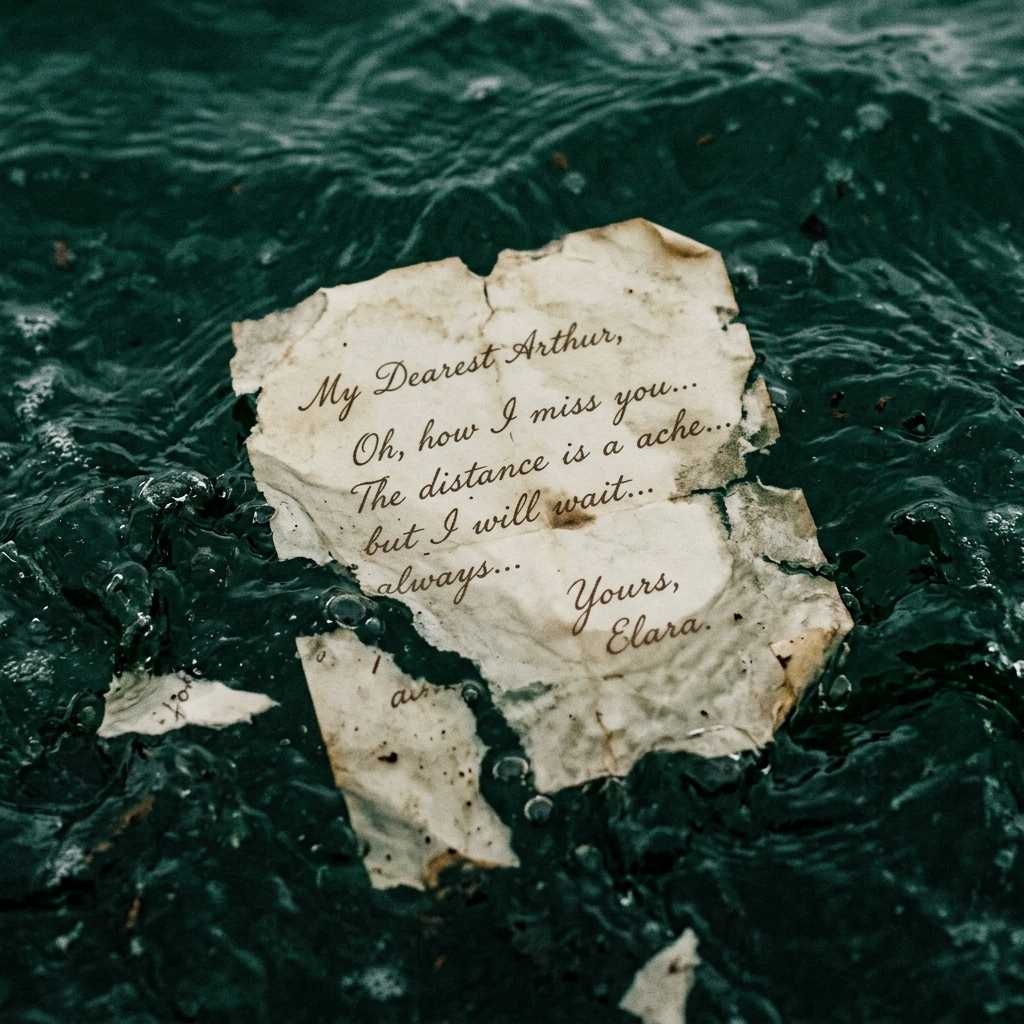 My Dearest Arthur,
Oh, how I miss you...
The distance is a ache...
but I will wait...
always...
Yours,
Elara.